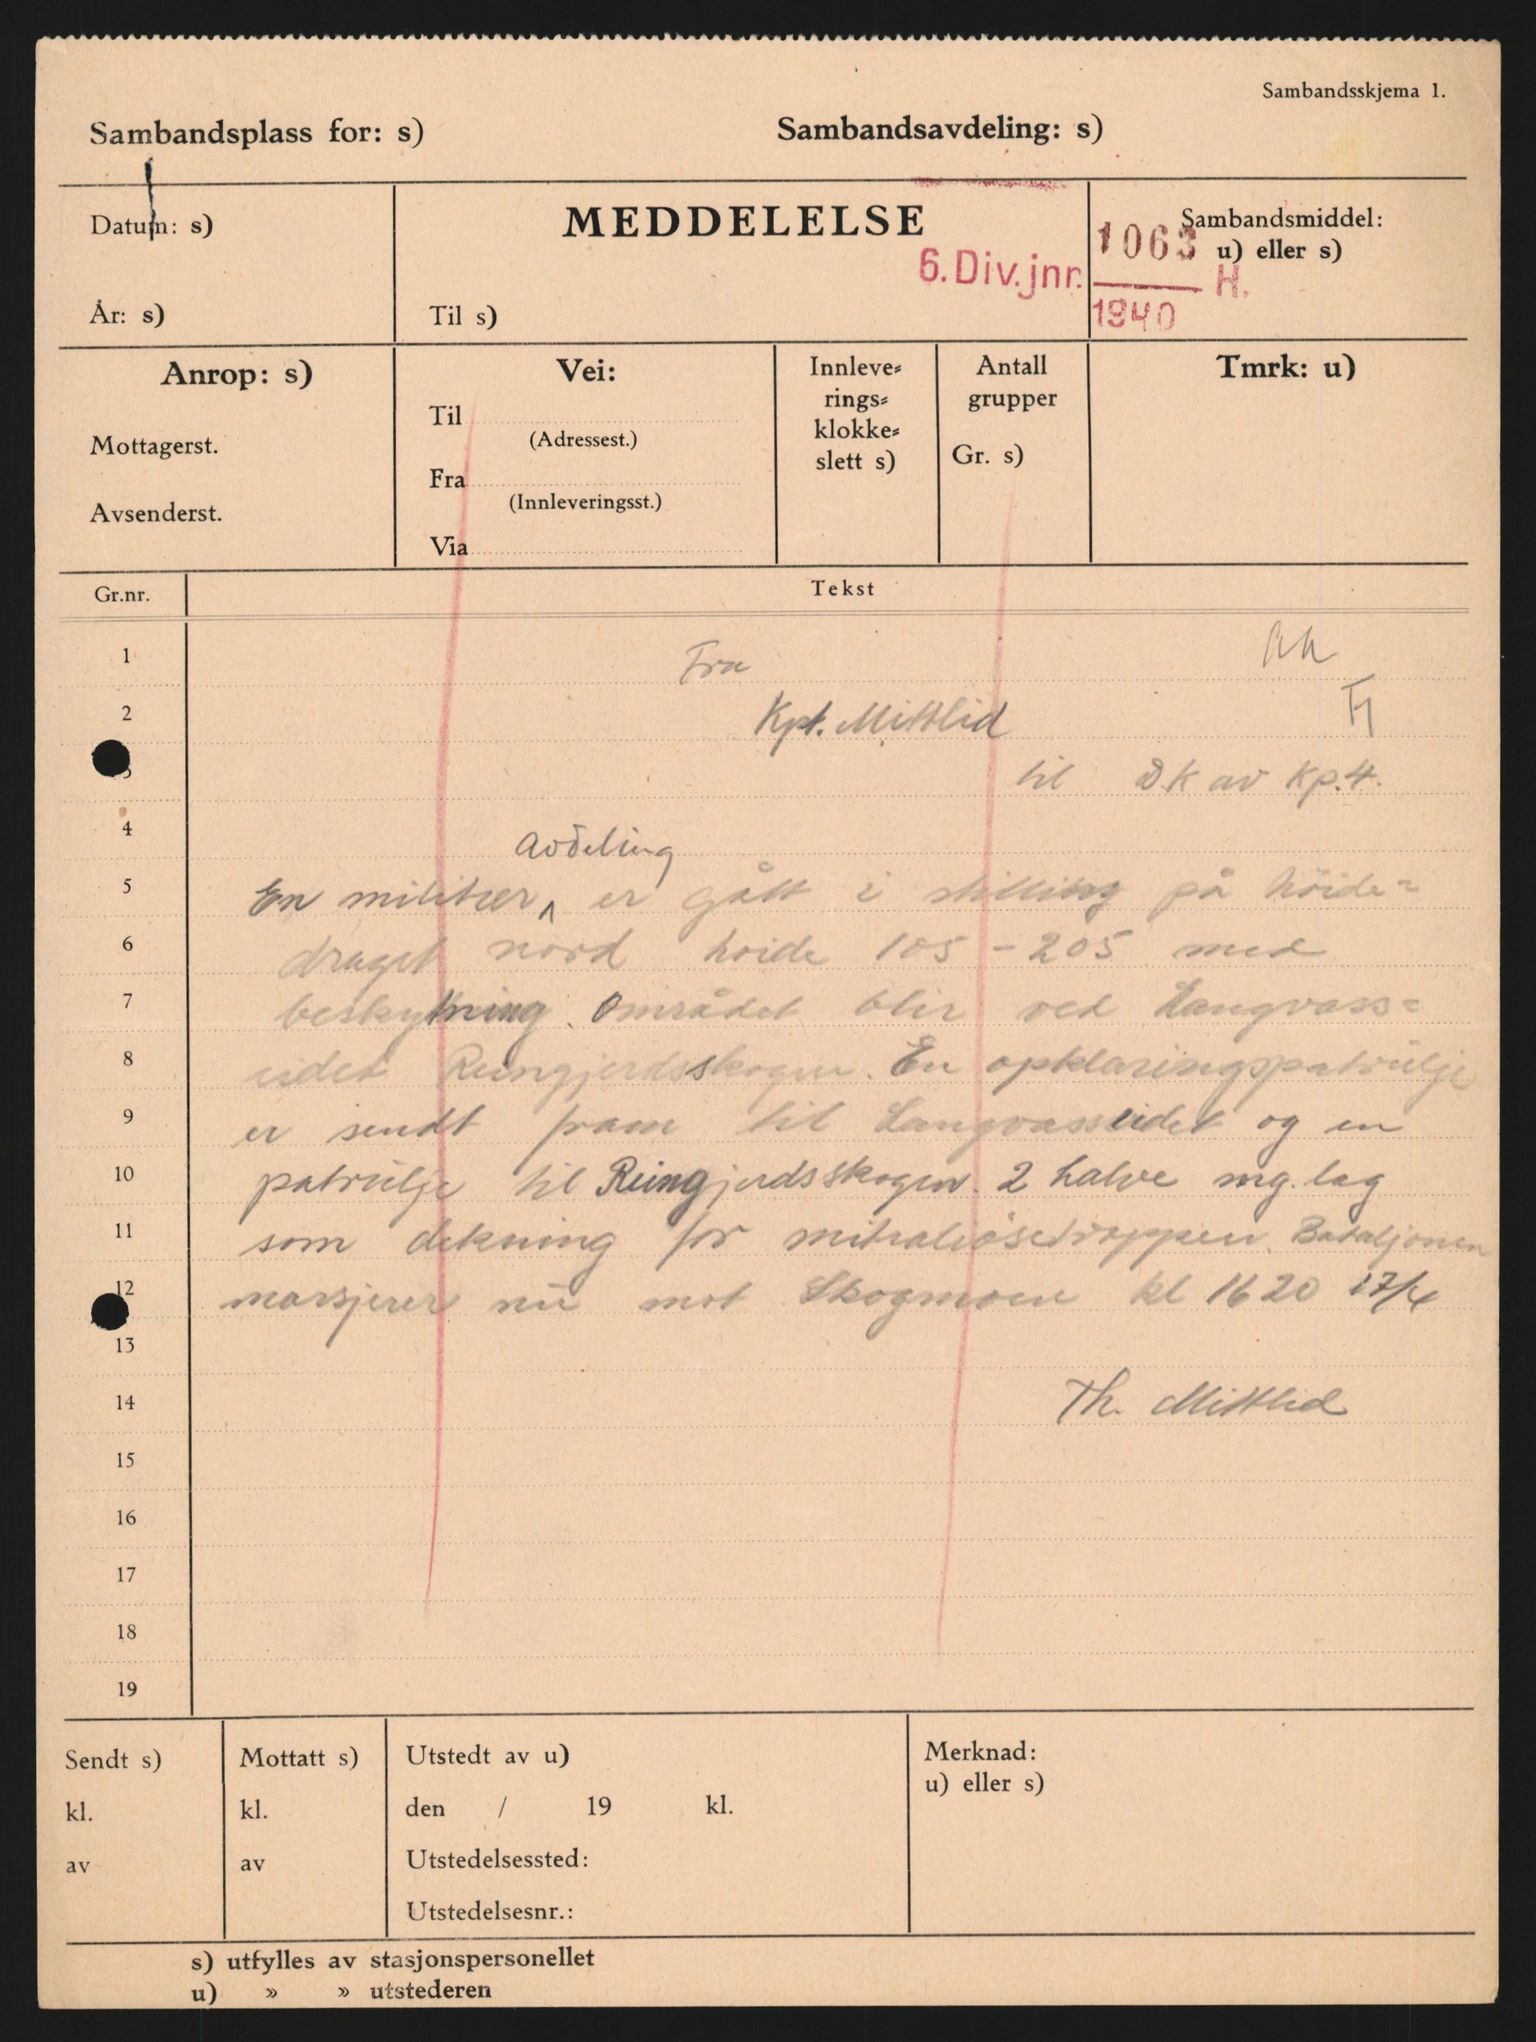 Sambandsskjema 1.
Sambandsplass for: s) Sambandsavdeling: s)
Datum: s)
År: s)
MEDDELELSE
Til s)
6. Div. jnr. 1063 H.
1940
Sambandsmiddel:
u) eller s)
Anrop: s)
Mottagerst.
Avsenderst.
Vei:
Til
(Adressest.)
Fra
(Innleveringsst.)
Via
Innleve=
rings=
klokke=
slett s)
Antall
grupper
Gr. s)
Tmrk: u)
Gr.nr. Tekst
1 Fra
2 Kpt. Mittlid
3 til D.K av Kp.4.
4 avdeling
5 En militær ^ er gått i stilling på höide=
6 draget nord höide 105 - 205 med
7 beskytning. Området blir ved Langvass=
8 eidet Reingjerdsskogen. En opklaringspatrulje
9 er sendt fram til Langvasseidet og en
10 patrulje til Reingjerdsskogen. 2 halve mg. lag
11 som dekning for mitraljösetroppen. Bataljonen
12 marsjerer nu mot Skogmoen kl 1620 17/4
13
14 Th. Mittlid
15
16
17
18
19
Sendt s)
kl.
av
Mottatt s)
kl.
av
Utstedt av u)
den / 19 kl.
Utstedelsessted:
Utstedelsesnr.:
Merknad:
u) eller s)
s) utfylles av stasjonspersonellet
u) » » utstederen